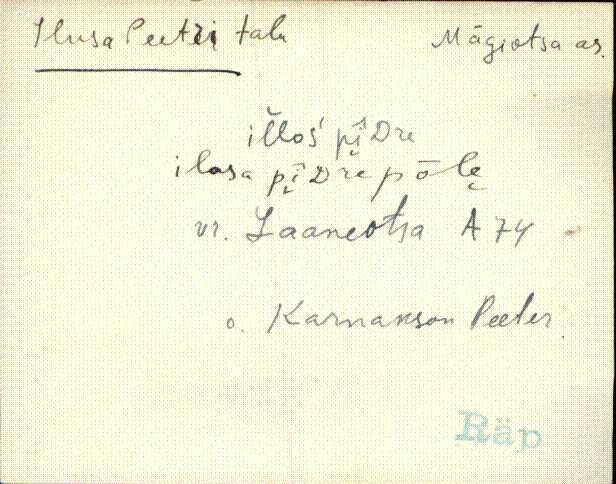 Ilusa Peetri talu Mägiotsa as.
il̆loś pî̭Dre
ilosa pî̭Dre pōle̬
vr. Laaneotsa A 74
o. Karnakson Peeter
Räp